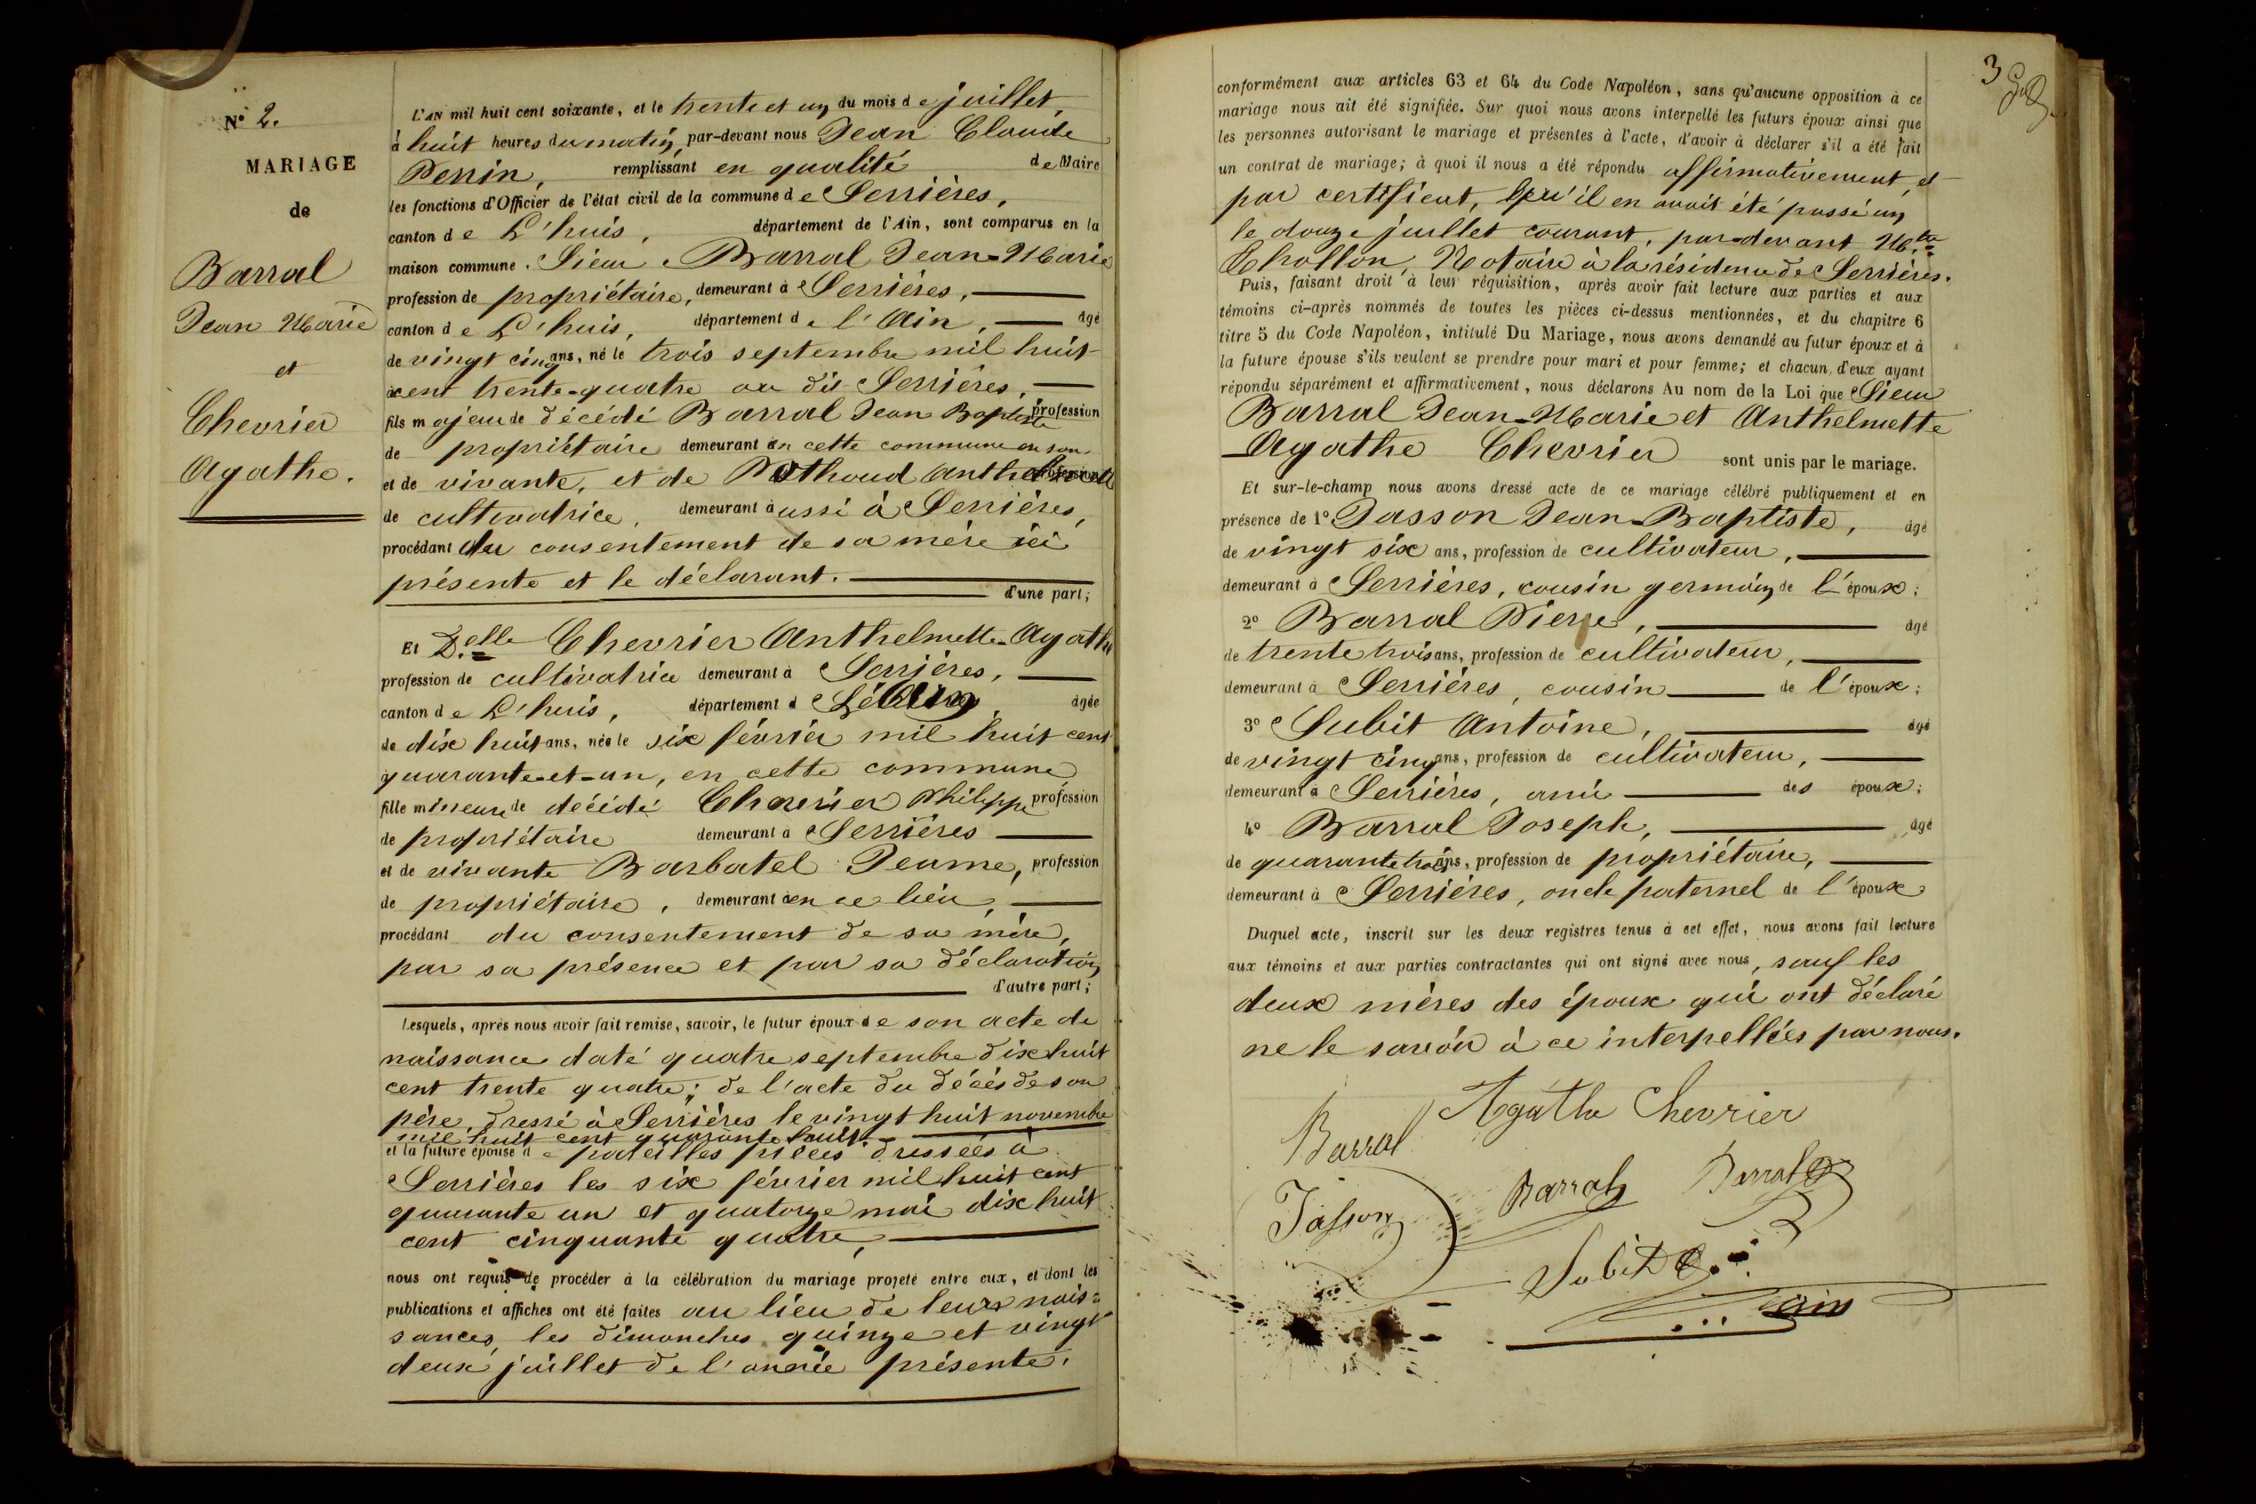 N° 2.
MARIAGE
de
Barral
Jean Marie
et
Chevrier
Agathe.
L'AN mil huit cent soixante, et le trente et un du mois de juillet,
à huit heures du matin, par-devant nous Jean Claude
Perrin, remplissant en qualité de Maire
les fonctions d'Officier de l'état civil de la commune de Serrières,
canton de L'huis, département de l'Ain, sont comparus en la
maison commune. Sieur Barral Jean-Marie
profession de propriétaire, demeurant à Serrières,
canton de L'huis, département de l'Ain, âgé
de vingt cinq ans, né le trois septembre mil huit
cent trente-quatre au dit Serrières,
fils majeur de décédé Barral Jean Baptiste profession
de propriétaire demeurant en cette commune en son
et de vivante, et de Pothoud profession
de cultivatrice, demeurant aussi à Serrières,
procédant du consentement de sa mère ici
présente et le déclarant.
d'une part;
Et D.elle Chevrier Anthelmette-Agathe
profession de cultivatrice demeurant à Serrières,
canton de L'huis, département d Ain âgée
de dix huit ans, née le six février mil huit cent
quarante-et-un, en cette commune
fille mineure de décédé Chevrier Philippe profession
de propriétaire demeurant à Serrières
et de vivante Barbatel Jeanne, profession
de propriétaire, demeurant en ce lieu,
procédant du consentement de sa mère,
par sa présence et par sa déclaration
d'autre part;
Lesquels, après nous avoir fait remise, savoir, le futur époux de son acte de
naissance daté quatre septembre dix huit
cent trente quatre; de l'acte du décès de son
père, dressé à Serrières le vingt huit novembre
mil huit cent quarante huit.
et la future épouse de pareilles pièces dressées à
Serrières les six février mil huit cent
quarante un et quatorze mai dix huit
cent cinquante quatre,
nous ont requis de procéder à la célébration du mariage projeté entre eux, et dont les
publications et affiches ont été faites au lieu de leurs nais=
sances, les dimanches quinze et vingt
deux juillet de l'année présente.
3
conformément aux articles 63 et 64 du Code Napoléon, sans qu'aucune opposition à ce
mariage nous ait été signifiée. Sur quoi nous avons interpellé les futurs époux ainsi que
les personnes autorisant le mariage et présentes à l'acte, d'avoir à déclarer s'il a été fait
un contrat de mariage; à quoi il nous a été répondu affirmativement, et
par certificat, qu'il en avait été passé un
le douze juillet courant, par-devant M.tre
Chollon, Notaire à la résidence de Serrières.
Puis, faisant droit à leur réquisition, après avoir fait lecture aux parties et aux
témoins ci-après nommés de toutes les pièces ci-dessus mentionnées, et du chapitre 6
titre 5 du Code Napoléon, intitulé Du Mariage, nous avons demandé au futur époux et à
la future épouse s'ils veulent se prendre pour mari et pour femme; et chacun d'eux ayant
répondu séparément et affirmativement, nous déclarons Au nom de la Loi que Sieur
Barral Jean-Marie et Anthelmette
Agathe Chevrier sont unis par le mariage.
Et sur-le-champ nous avons dressé acte de ce mariage célébré publiquement et en
présence de 1° Jasson Jean-Baptiste, âgé
de vingt six ans, profession de cultivateur,
demeurant à Serrières, cousin germain de l'époux;
2° Barral Pierre, âgé
de trente trois ans, profession de cultivateur,
demeurant à Serrières, cousin de l'époux;
3° Subit Antoine, âgé
de vingt cinq ans, profession de cultivateur,
demeurant à Serrières, ami des époux;
4° Barral Joseph, âgé
de quarante trois ans, profession de propriétaire,
demeurant à Serrières, oncle paternel de l'époux
Duquel acte, inscrit sur les deux registres tenus à cet effet, nous avons fait lecture
aux témoins et aux parties contractantes qui ont signé avec nous, sauf les
deux mères des époux qui ont déclaré
ne le savoir à ce interpellées par nous.
Agathe Chevrier
Barral
Barral Barral
Jasson
Subit